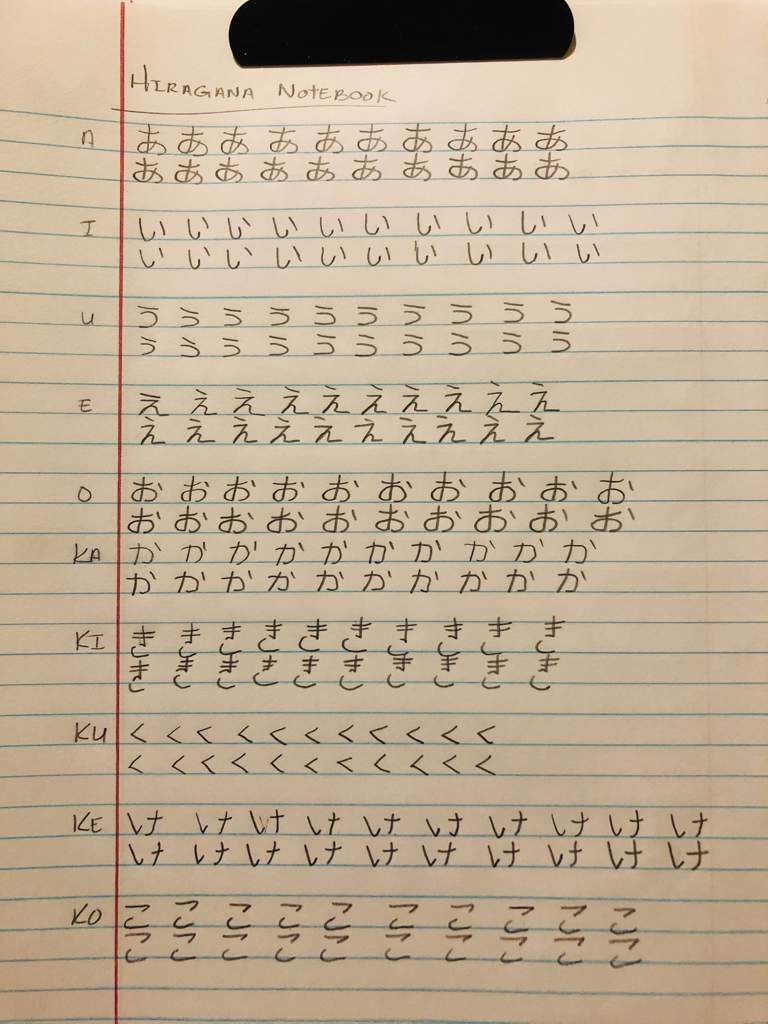 HIRAGANA NOTEBOOK
A ああああああああああ
ああああああああああ
I いいいいいいいいいい
いいいいいいいいいい
U うううううううううう
うううううううううう
E ええええええええええ
ええええええええええ
O おおおおおおおおおお
おおおおおおおおおお
KA かかかかかかかかかか
かかかかかかかかかか
KI きききききききききき
きききききききききき
KU くくくくくくくくくくく
くくくくくくくくくくく
KE けけけけけけけけけけ
けけけけけけけけけけ
KO ここここここここここ
ここここここここここ